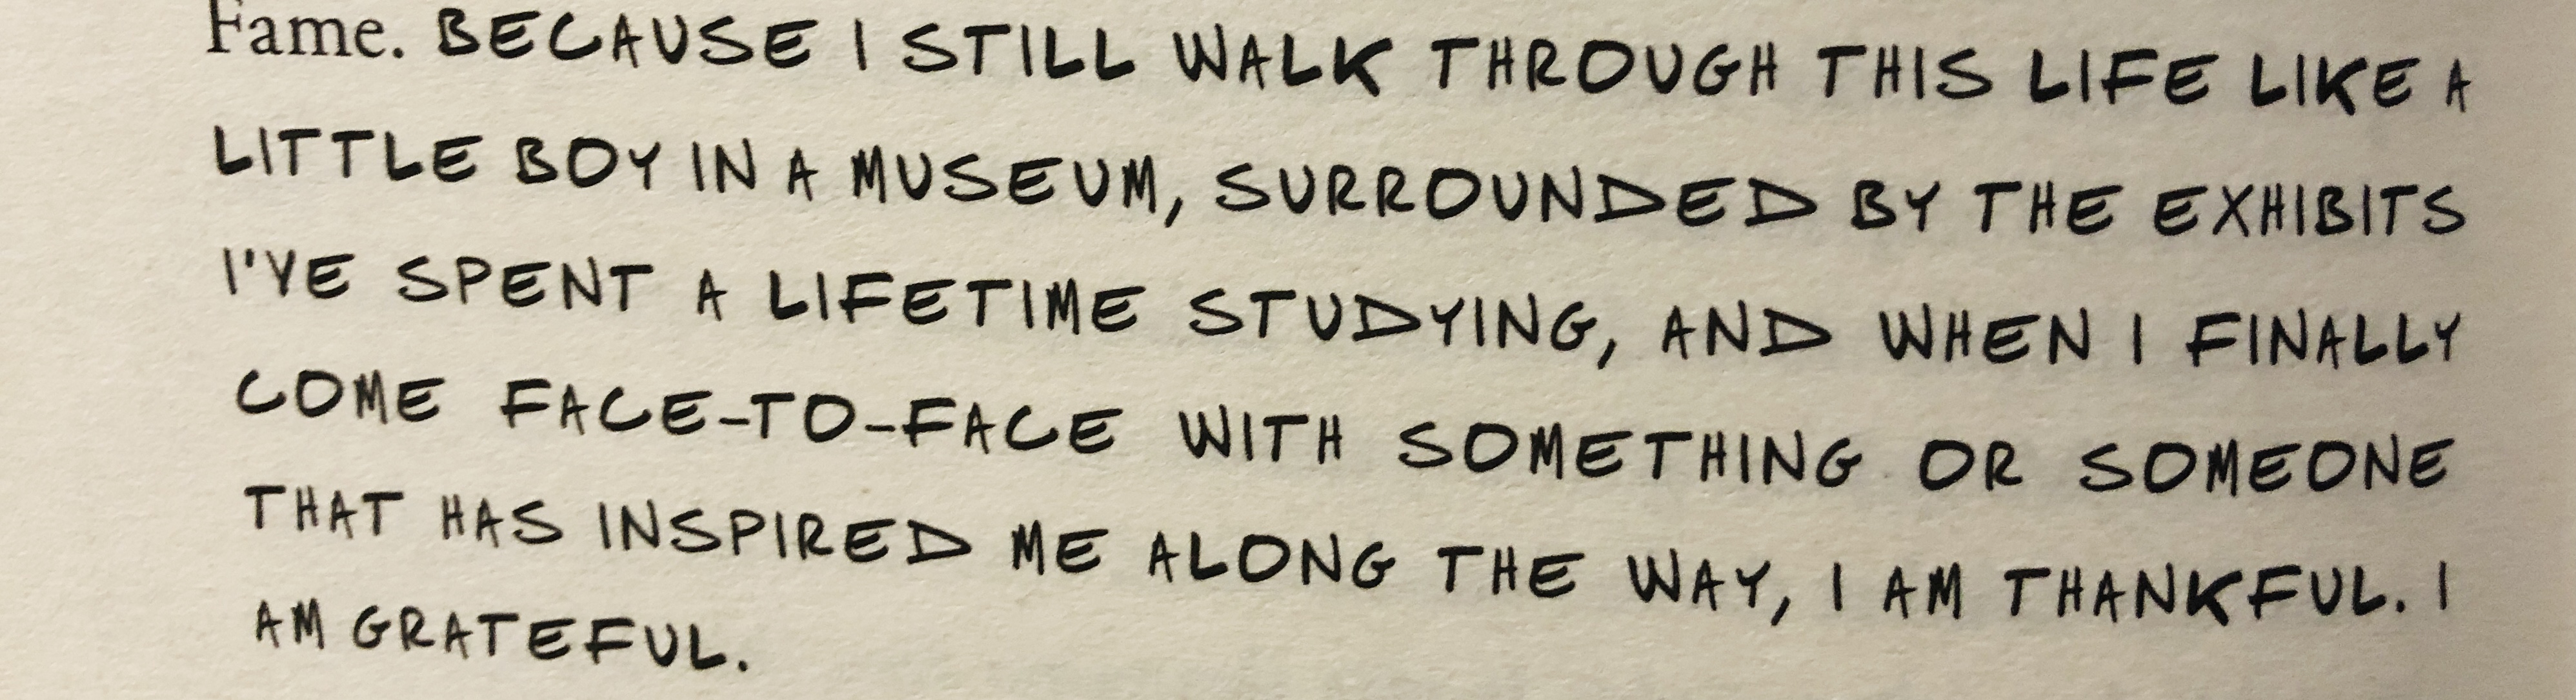 Fame. BECAUSE I STILL WALK THROUGH THIS LIFE LIKE A
LITTLE BOY IN A MUSEUM, SURROUNDED BY THE EXHIBITS
I'VE SPENT A LIFETIME STUDYING, AND WHEN I FINALLY
COME FACE-TO-FACE WITH SOMETHING OR SOMEONE
THAT HAS INSPIRED ME ALONG THE WAY, I AM THANKFUL. I
AM GRATEFUL.